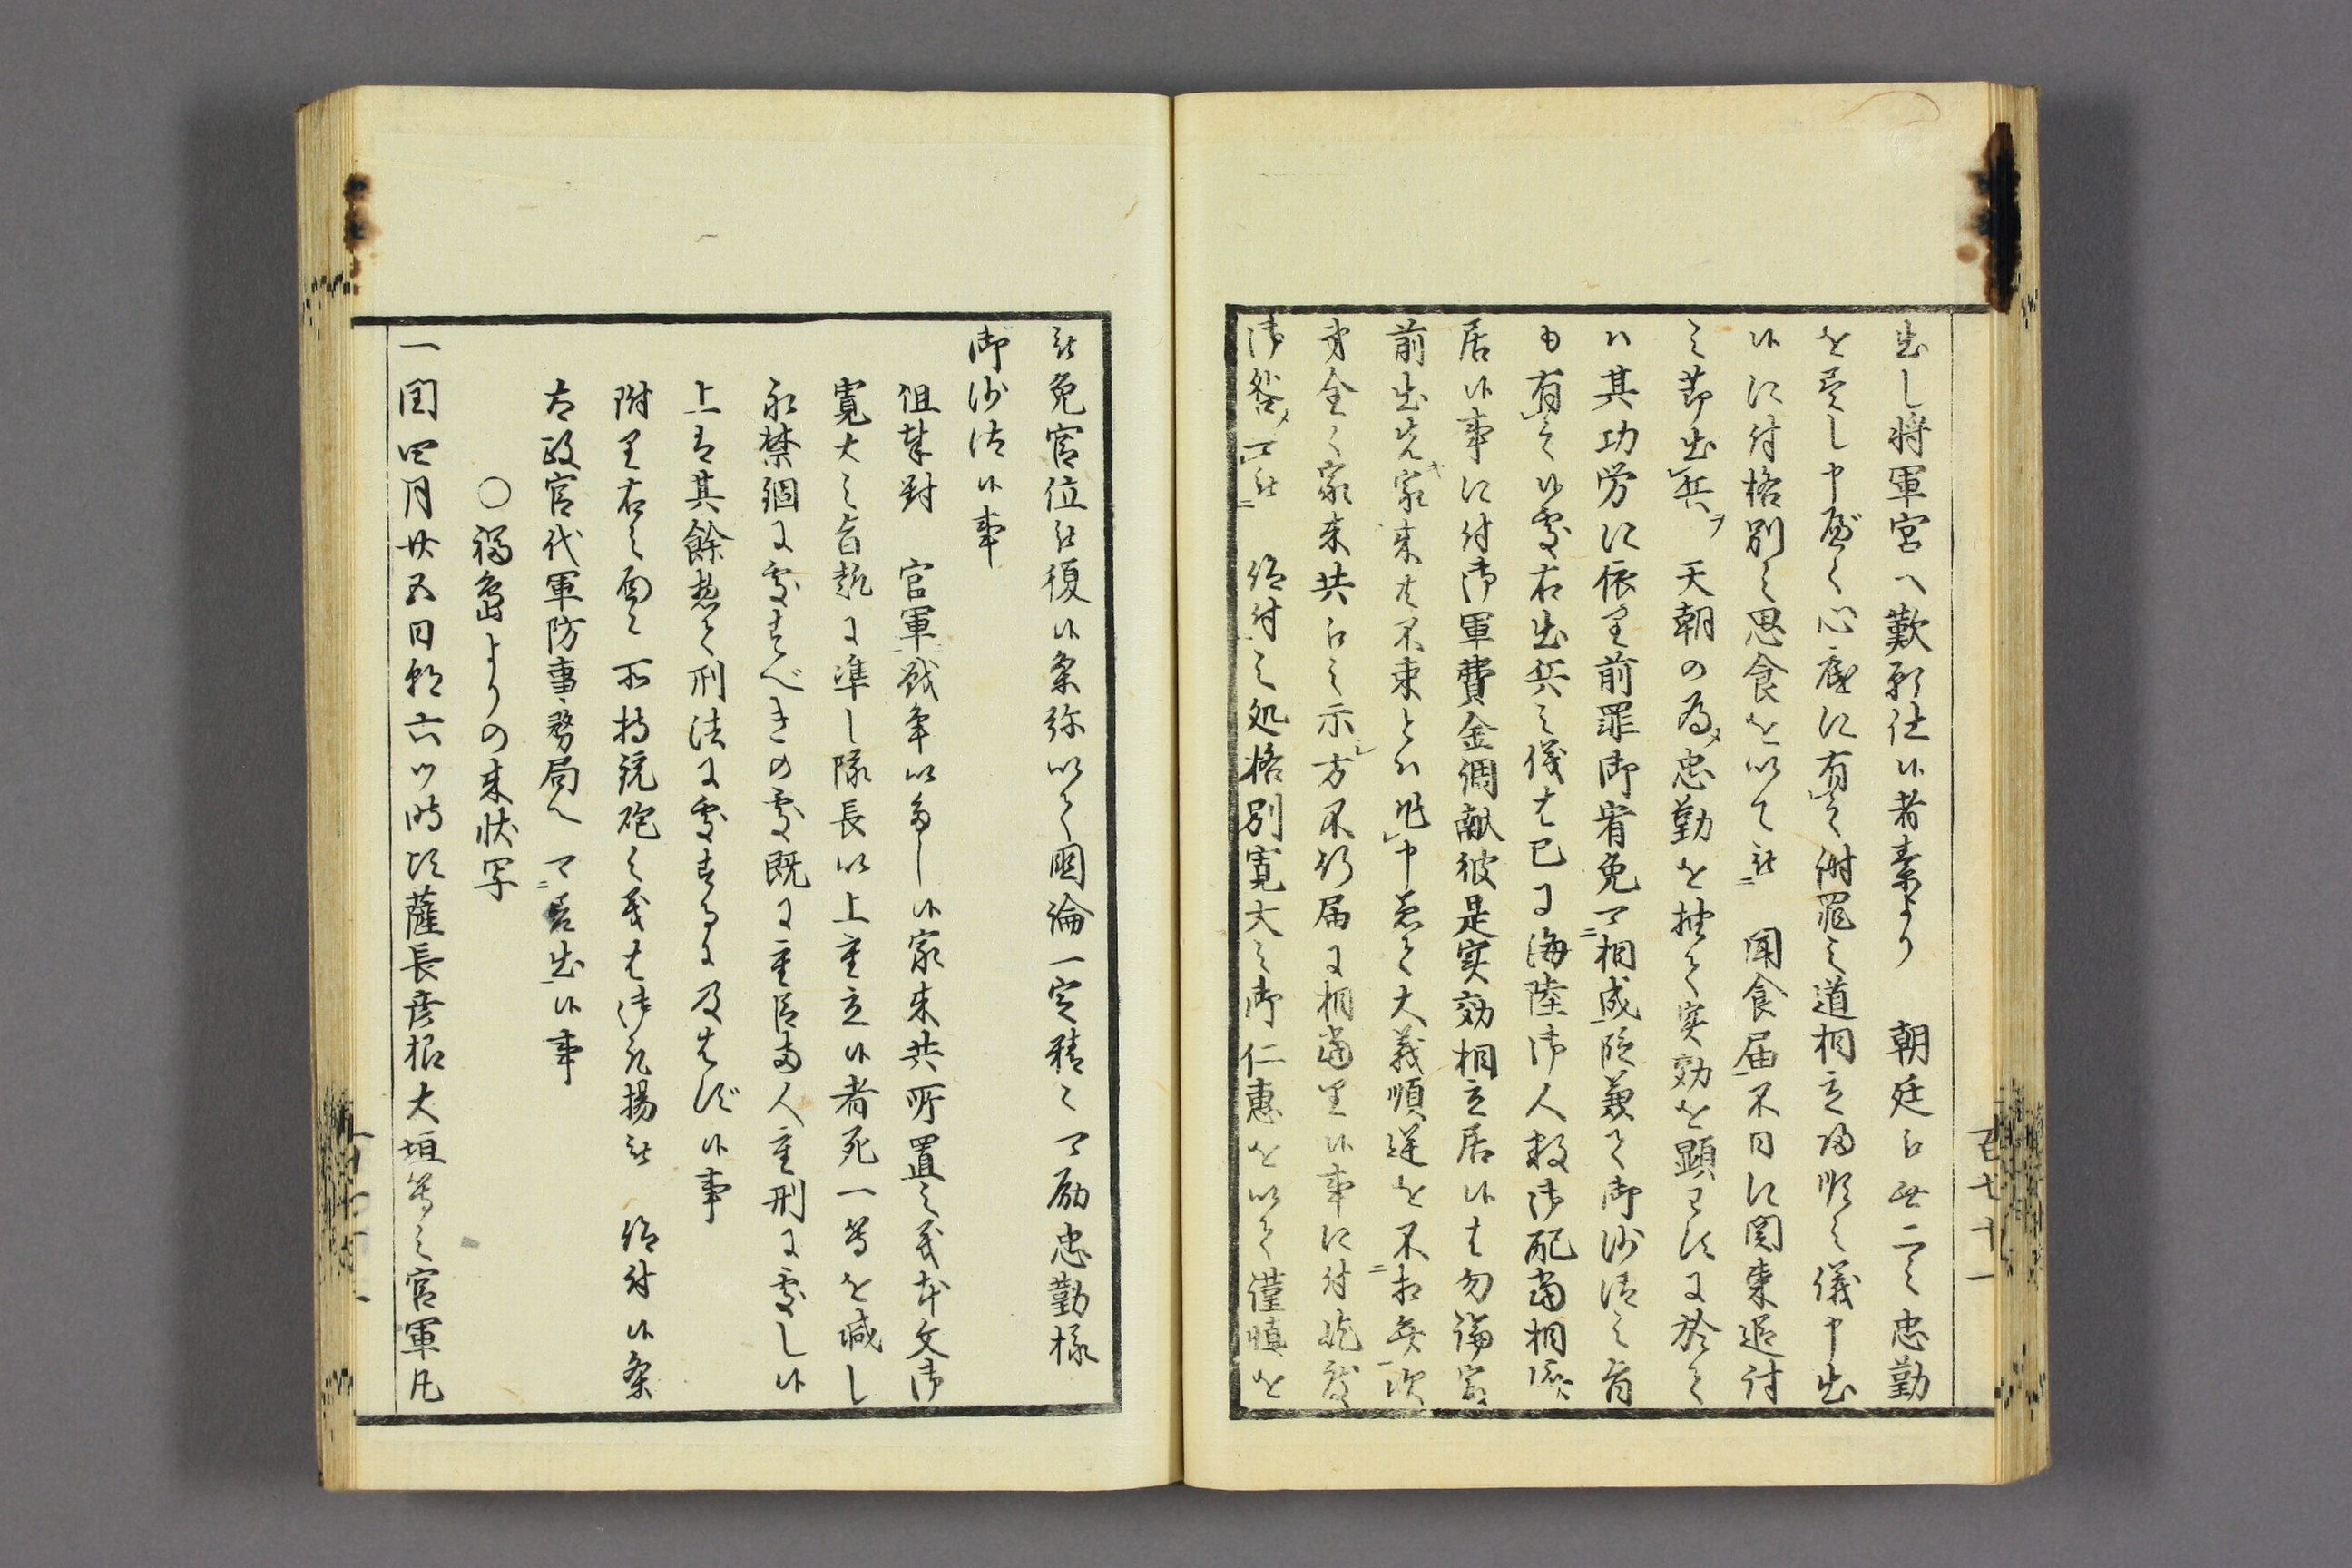 出し将軍宮へ歎願仕候者素より　朝廷ニ無二之忠勤
を尽し申度く心底に有之謝罪之道相立帰順之儀申出
候に付格別之思食を以て被　聞食届不日に関東追討
之節出兵ヲ　天朝の為メ忠勤を抽て実効を顕ハすに於て
ハ其功労に依り前罪御宥免可相成段兼て御沙汰之旨
も有之候処右出兵之儀は已に海陸御人数御配当相済
居候事に付御軍費金調献彼是実効相立居候は勿論
前出先キ家来共不束とハ乍申恐て大義順逆を不相弁次
第全く家来共之示シ方不行届に相当り候事に付
御咎メ可被　仰付之処格別寛大之御仁恵を以て謹慎を
被免官位被復候条弥以て国論一定精々可励忠勤様
御沙汰候事
徂撃対　官軍戦争以多し候家来共所置之義本文御
寛大之旨趣に準し隊長以上重立候者死一等を減し
永禁錮に処すべきの処既に重臣両人重刑に処し候
上は其余惣て刑法に処するに及はず候事
附り右之面々所持銃砲之義は御取揚被　仰付候条
太政官代軍防事務局へ可差出候事
〇福島よりの来状写
一閏四月廿五日朝六ツ時頃薩長彦根大垣等之官軍凡
百七十一